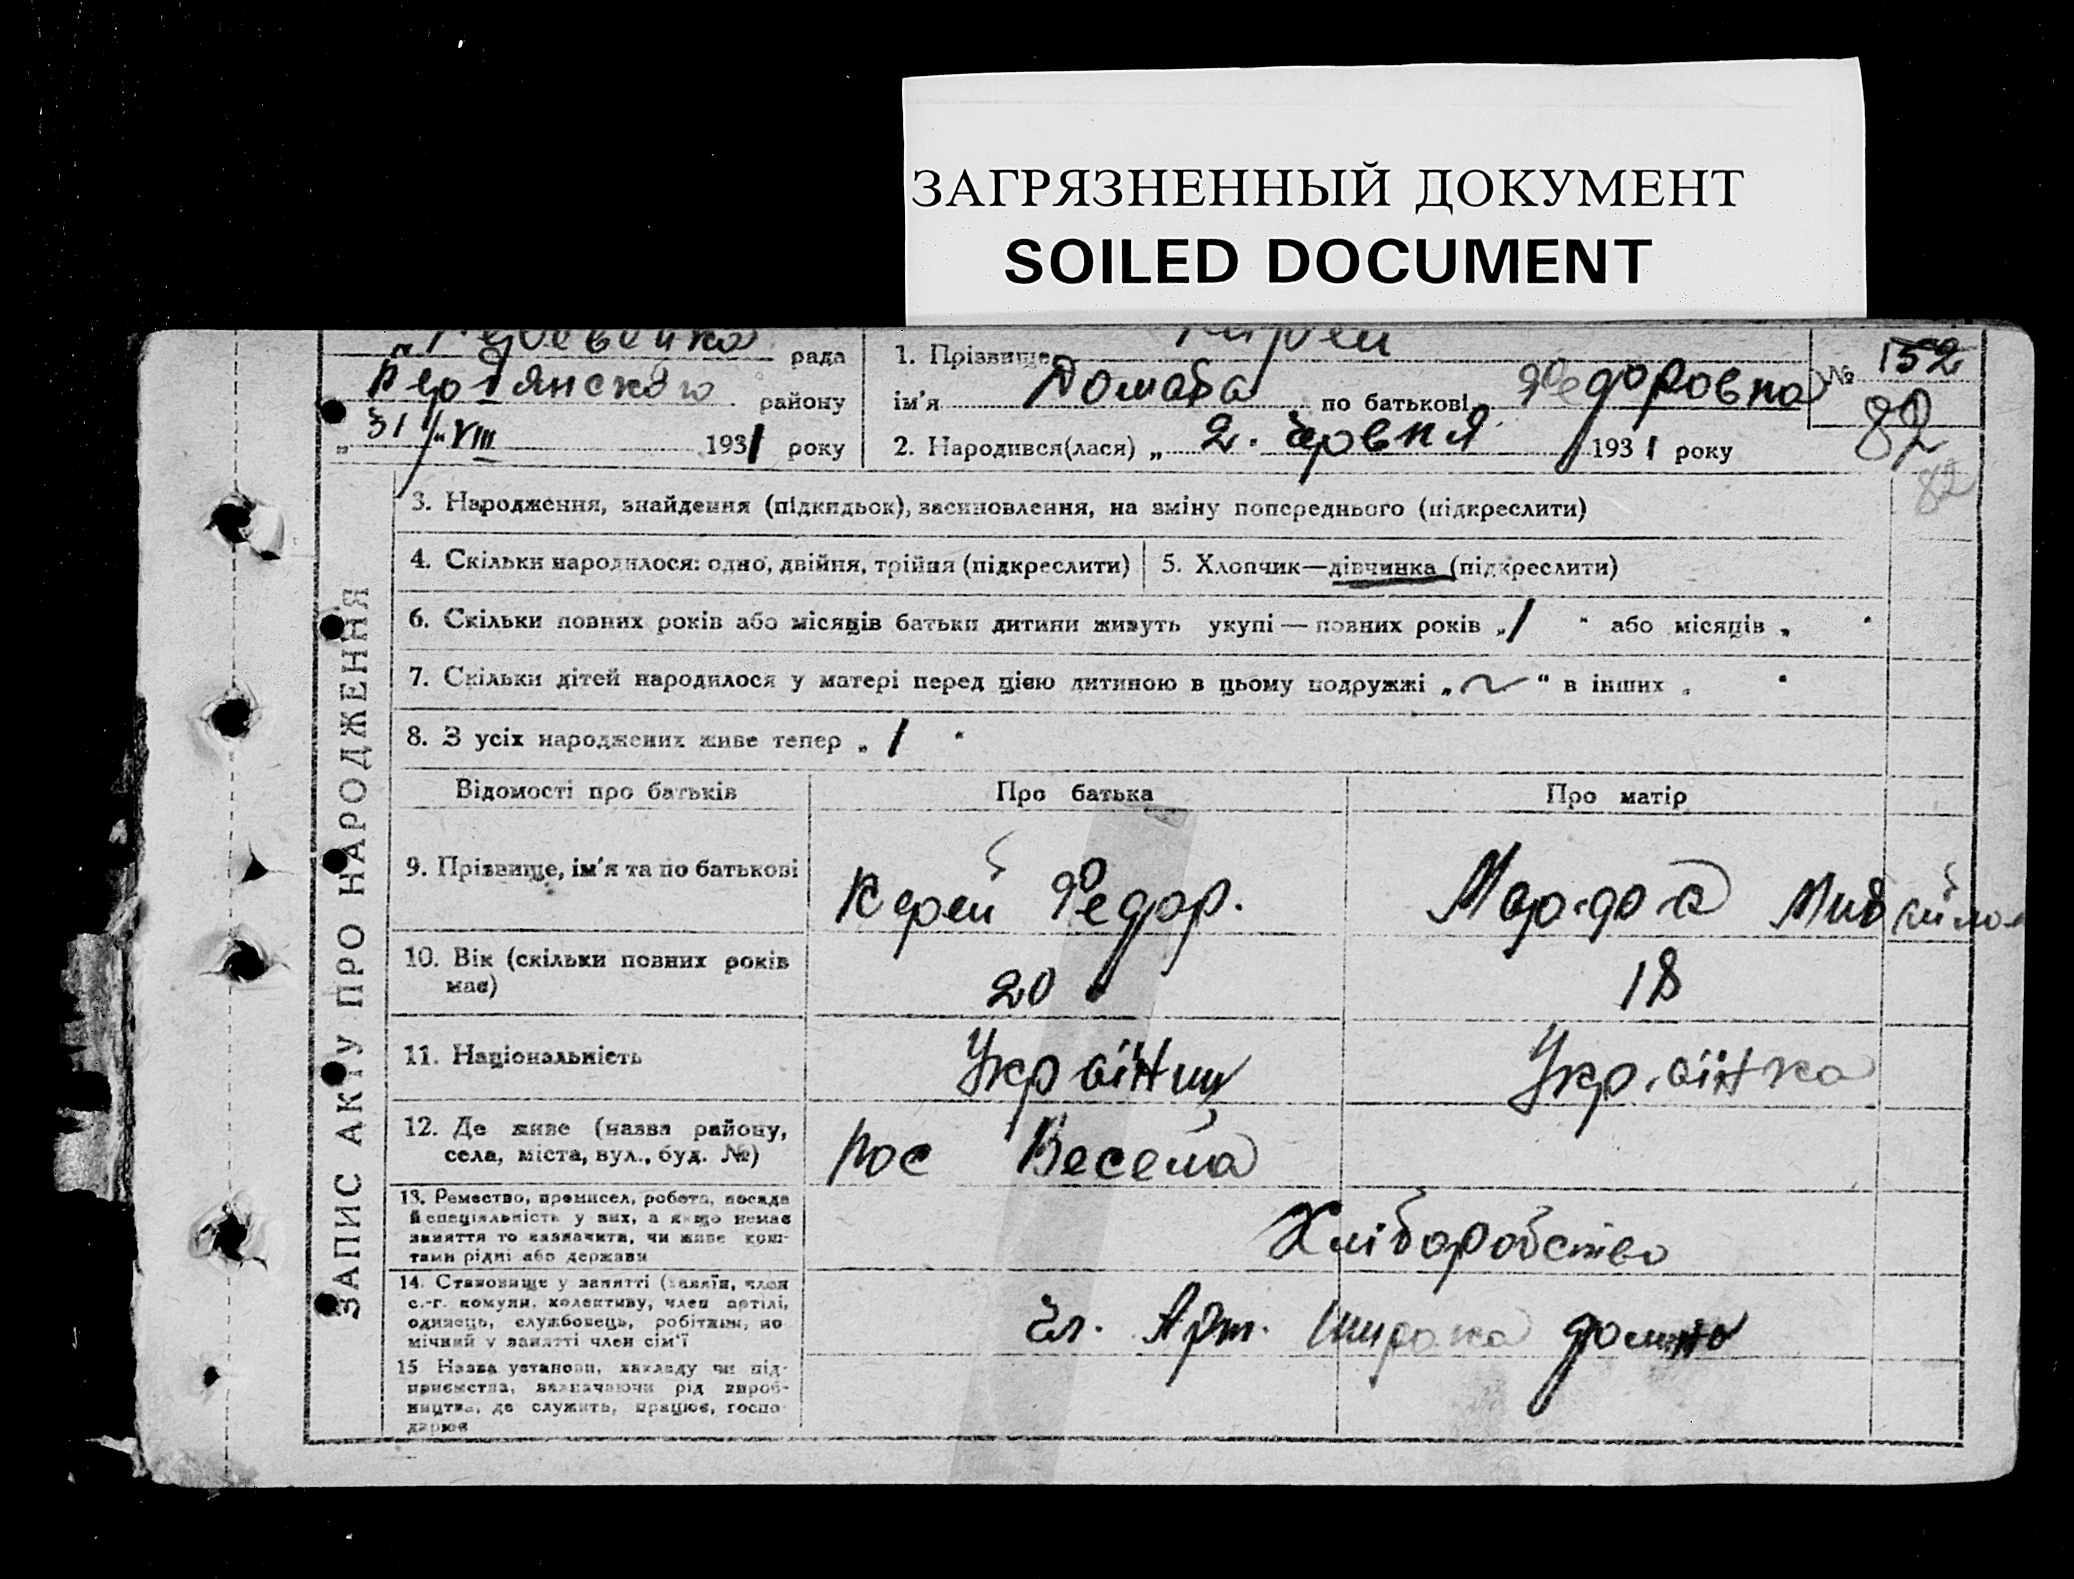 ЗАГРЯЗНЕННЫЙ ДОКУМЕНТ
SOILED DOCUMENT
рада
району
31/VIII 1931 року
1. Прізвище
ім'я Домаха по батькові Федоровна
2. Народився(лася) „ 2. Червня 1931 року
№ 152
82
82
ЗАПИС АКТУ ПРО НАРОДЖЕННЯ
3. Народження, знайдення (підкидьок), всиновлення, на зміну попереднього (підкреслити)
4. Скільки народилося: одно, двійня, трійня (підкреслити)
5. Хлопчик—дівчинка (підкреслити)
6. Скільки повних років або місяців батьки дитини живуть укупі — повних років „ 1 " або місяців „ "
7. Скільки дітей народилося у матері перед цією дитиною в цьому подружжі „ ~ " в інших „ "
8. З усіх народжених живе тепер „ 1 "
Відомості про батьків
Про батька
Про матір
9. Прізвище, ім'я та по батькові
Федор.
10. Вік (скільки повних років має)
20
18
11. Національність
Українц
Українка
12. Де живе (назва району, села, міста, вул., буд. №)
пос Весела
13. Ремество, промисел, робота, посада
й спеціяльність у них, а якщо немає
заняття то назначити, чи живе кош-
тами рідні або держави
Хліборобство
14. Становище у занятті (хазяїн, член
с.-г. комуни, колективу, член артілі,
одинець, службовець, робітник, по-
мічний у занятті член сім'ї
Чл. Арт. Широка долина
15 Назва установи, закладу чи під-
приємства, вазначаючи рід вироб-
ництва, де служить, працює, госпо-
дарює